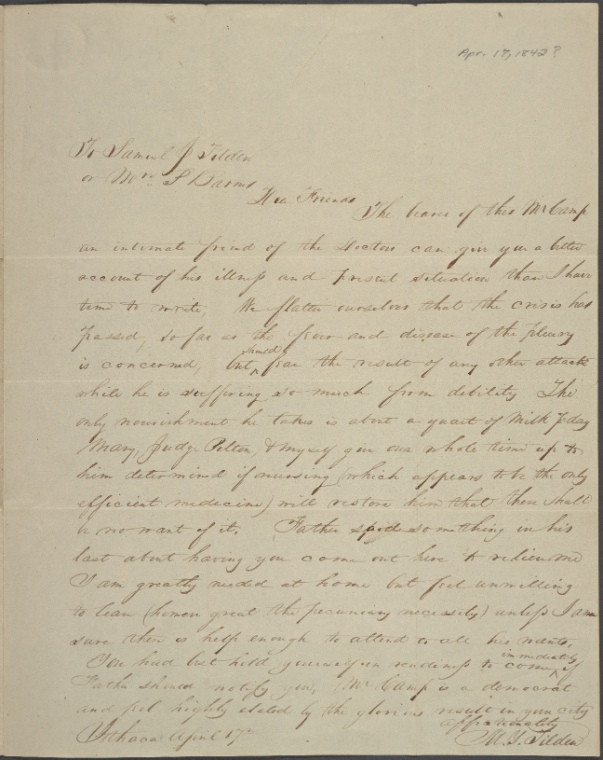 Apr. 17, 1842?
To Samuel J Tilden
or Mrs. S Barns
Dear Friends
The bearer of this Mr Camp
an intimate friend of the Doctors can give you a better
account of his illness and present situation than I have
time to write. We flatter ourselves that the crisis has
passed, so far as the fever and disease of the pleury
is concerned, but fear the result of any other attack
while he is suffering so much from debility The
only nourishment he takes is about a quart of Milk pr day
Mary, Judge Pelton, & myself give our whole time up to
him determined if nursing (which appears to be the only
efficient medicine) will restore him that there shall
be no want of it. Father said something in his
last about having you come out here to relieve me
I am greatly needed at home but feel unwilling
to leave (however great the pecuniary necessity) unless I am
sure there is help enough to attend to all his wants.
immediately
You had best hold yourself in readiness to come, if
Father should notify you, Mr Camp is a democrat
and feel highly elated by the glorious result in your city
affectionately
Ithaca April 17th
M. Y. Tilden